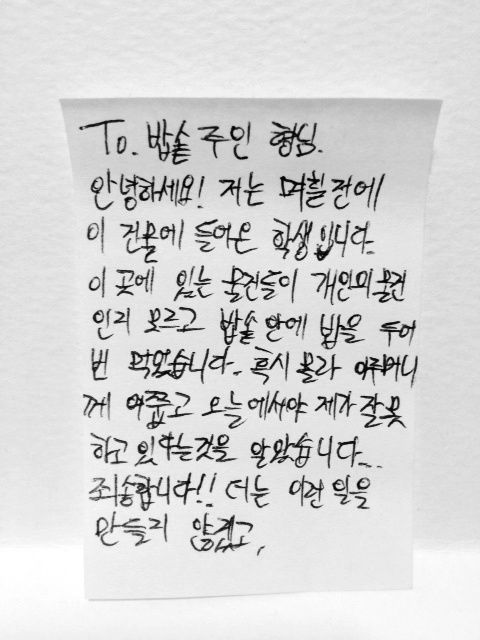 To. 밥솥 주인 형님.
안녕하세요! 저는 며칠전에
이 건물에 들어온 학생입니다.
이 곳에 있는 물건들이 개인의물건
인지 모르고 밥솥 안에 밥을 두어
번 먹었습니다. 혹시 몰라 아주머니
께 여쭙고 오늘에서야 제가 잘못
하고 있다는것을 알았습니다...
죄송합니다!! 더는 이런 일을
만들지 않겠고,